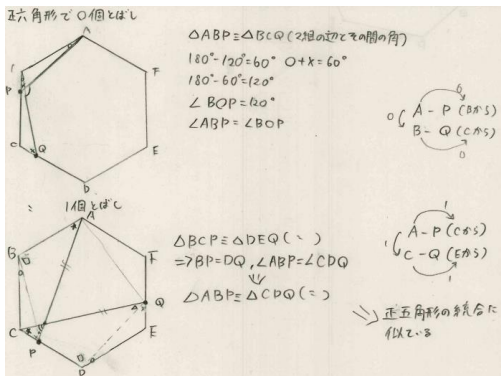 正六角形で0個とばし
A
F
P
C
Q
E
D
△ABP≡△BCQ(2組の辺とその間の角)
180°-120°=60° O+×=60°
180°-60°=120°
∠BOP=120°
∠ABP=∠BOP
0
A-P(Bから)
0
B-Q(Cから)
0
1個とばし
A
B
F
Q
C
P
E
D
△BCP≡△DEQ(〃)
⇒BP=DQ,∠ABP=∠CDQ
⇓
△ABP≡△CDQ(=)
1
A-P(Cから)
1
C-Q(Eから)
1
正五角形の統合に
似ている